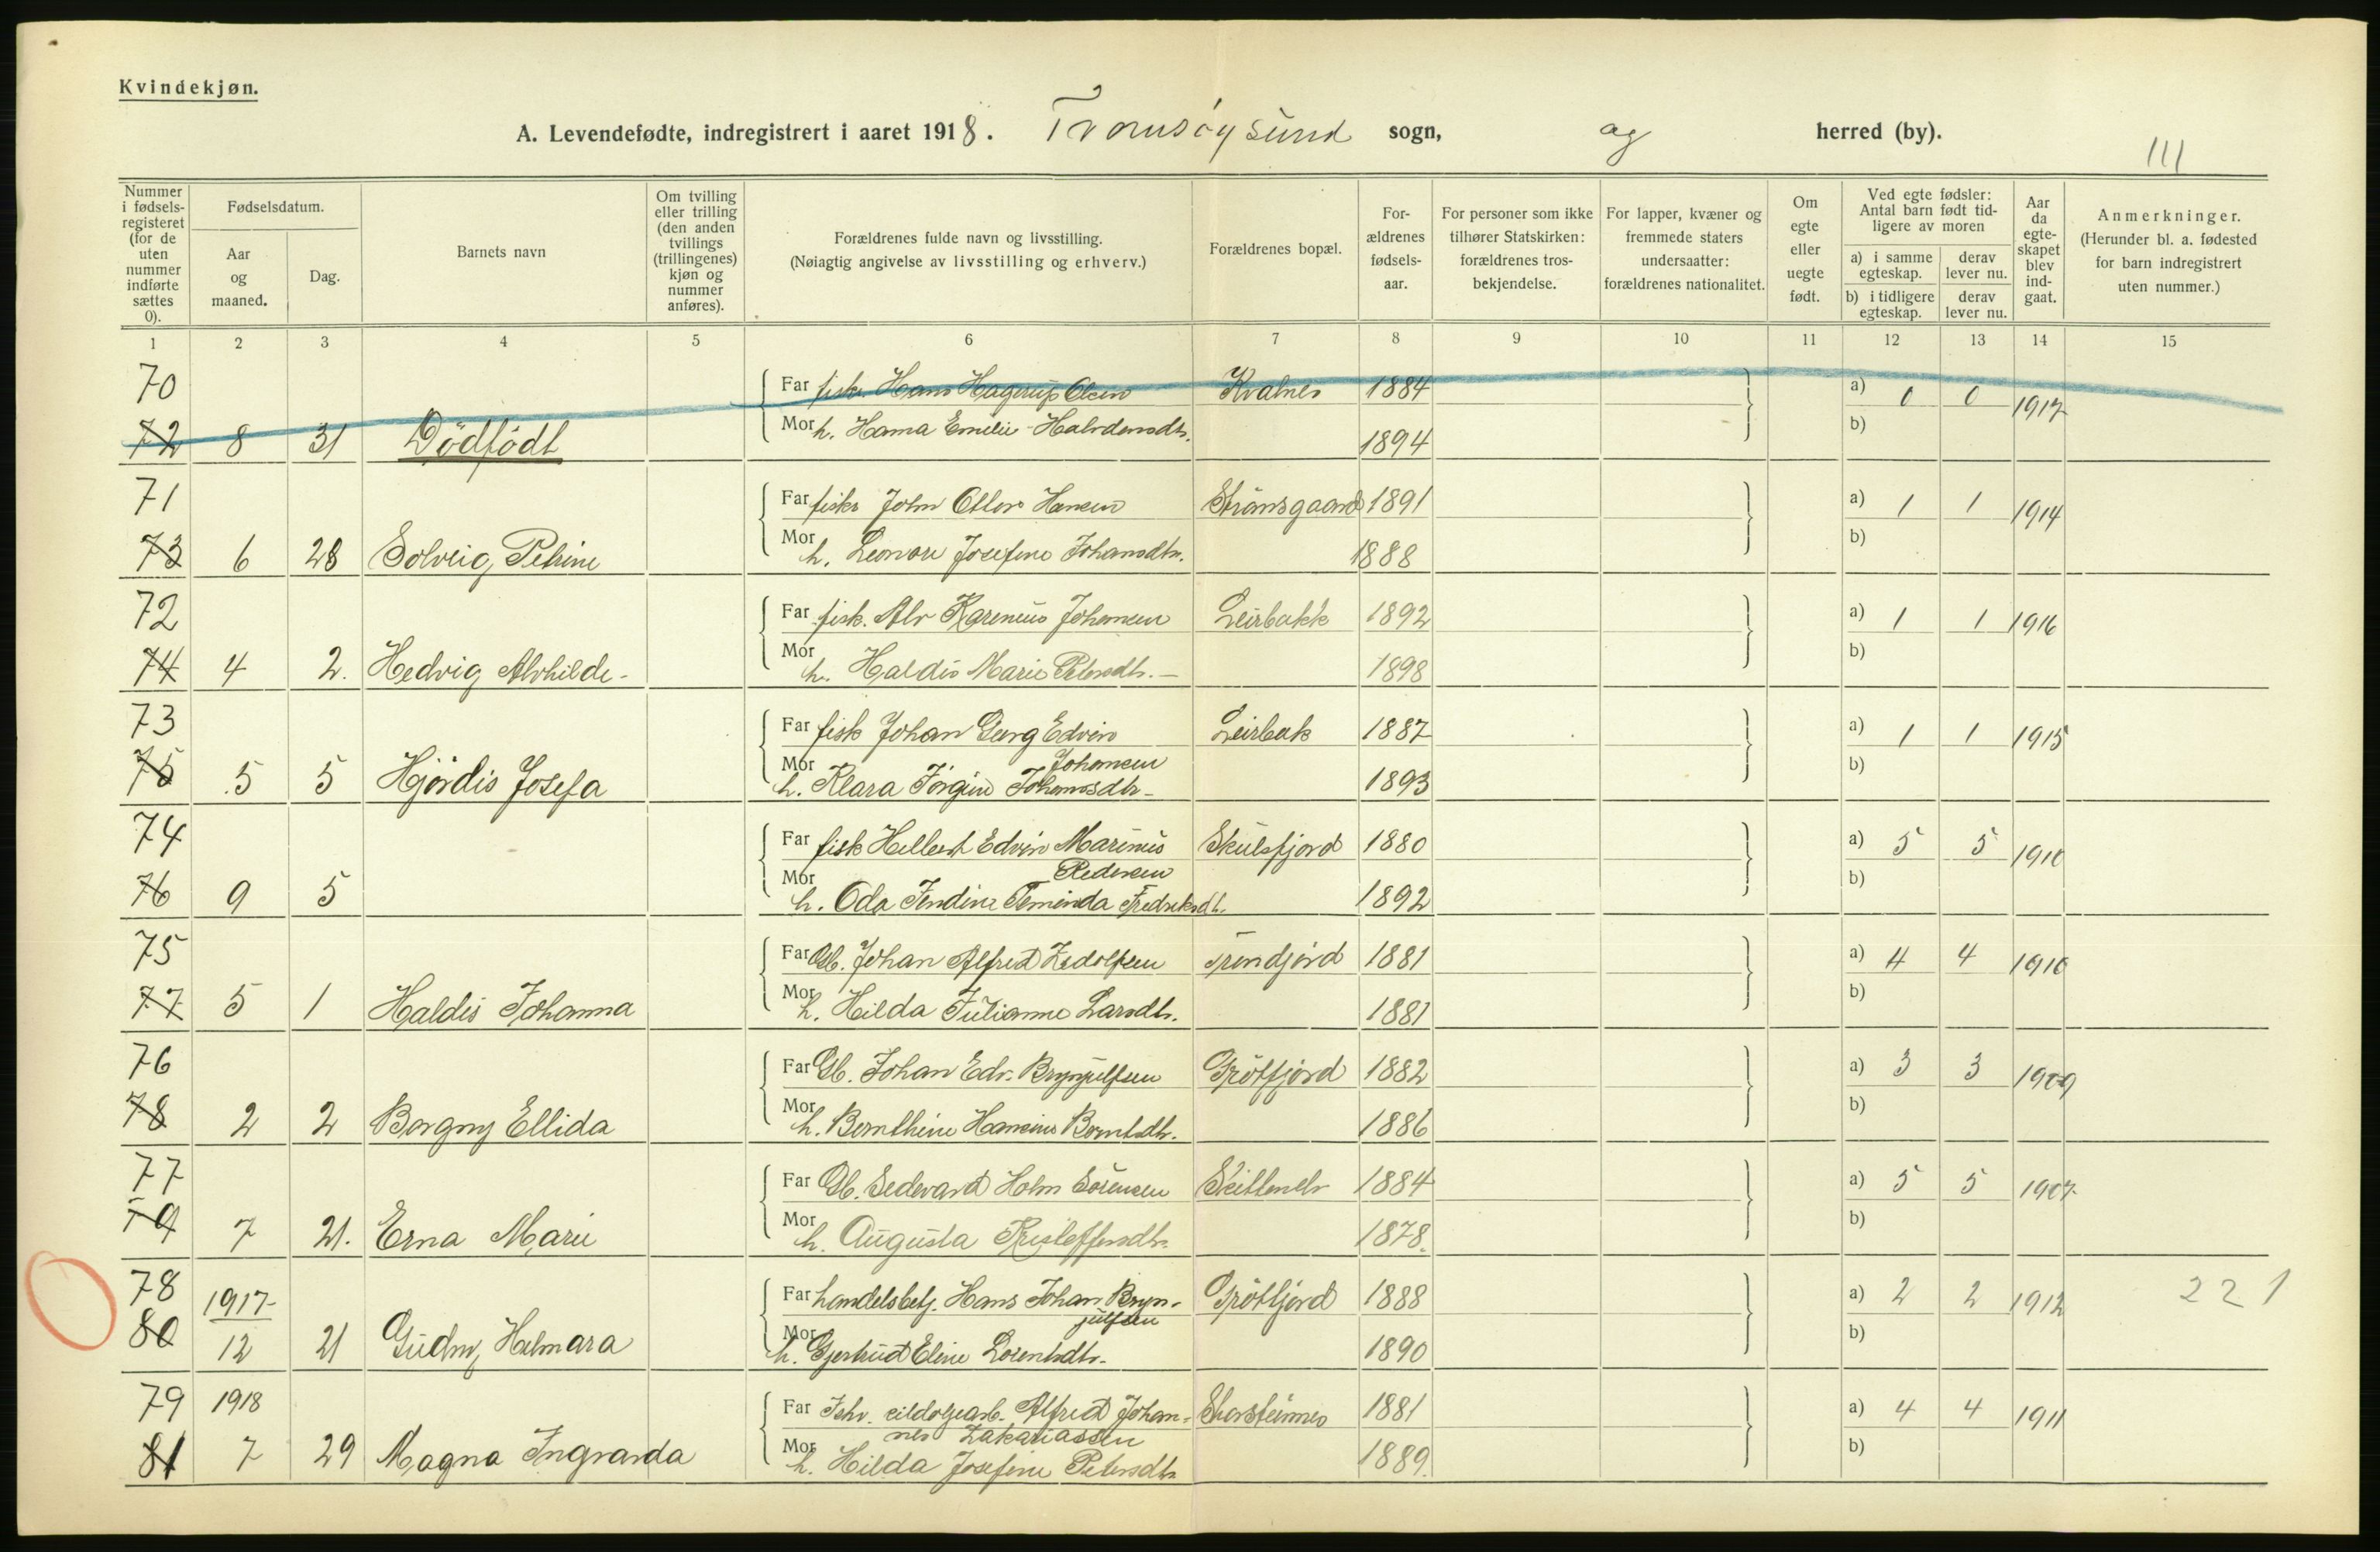 Kvindekjøn.
A. Levendefødte, indregistrert i aaret 1918. Tromsøysund sogn, og herred (by).
111
Nummer i fødsels-registeret (for de uten nummer indførte sættes 0).
Fødselsdatum.
Aar og maaned.
Dag.
Barnets navn
Om tvilling eller trilling (den anden tvillings (trillingenes) kjøn og nummer anføres).
Forældrenes fulde navn og livsstilling.
(Nøiagtig angivelse av livsstilling og erhverv.)
Forældrenes bopæl.
For-ældrenes fødsels-aar.
For personer som ikke tilhører Statskirken: forældrenes tros-bekjendelse.
For lapper, kvæner og fremmede staters undersaatter: forældrenes nationalitet.
Om egte eller uegte født.
Ved egte fødsler: Antal barn født tid-ligere av moren
a) i samme egteskap.
derav lever nu.
b) i tidligere egteskap.
derav lever nu.
Aar da egte-skapet blev ind-gaat.
Anmerkninger.
(Herunder bl. a. fødested for barn indregistrert uten nummer.)
1 2 3 4 5 6 7 8 9 10 11 12 13 14 15
70 Far fisk. Hans Hagerup Olsen Kvalnes 1884 a) 0 0 1917
72 8 31 Dödfödt Mor h. Hanna Emelie Halvdansdtr. 1894 b)
71 Far fisker John Hansen Strömsgaard 1891 a) 1 1 1914
73 6 28 Solveig Petrine Mor h. Leonore Josefine Johansdtr. 1888 b)
72 Far fisk. Alv Karenius Johansen Leirbakk 1892 a) 1 1 1916
74 4 2. Hedvig Alvhilde- Mor h. Haldis Marie Petersdtr. - 1898 b)
73 Far fisk Johan Georg Edvin Leirbak 1887 a) 1 1 1915
Johansen
75 5 5 Hjördis Josefa Mor h. Klara Jörgine Johansdtr- 1893 b)
74 Far fisk Hilbert Edvin Marinus Skulsfjord 1880 a) 5 5 1910
Pedersen
76 9 5 Mor h. Oda Fredriksdt. 1892 b)
75 Far Gb. Johan Alfred Tröndjord 1881 a) 4 4 1910
77 5 1 Haldis Johanna Mor h. Hilda Julianne Larsdtr. 1881 b)
76 Far Gb. Johan Edv. Brynjulfsen Grötfjord 1882 a) 3 3 1909
78 2 2 Borgny Ellida Mor h. Bernthine Hansine Berntsdtr. 1886 b)
77 Far Gb. Sedevard Holm Sörensen Skittenelv 1884 a) 5 5 1907
79 7 21. Erna Marie Mor h. Augusta Kristoffersdtr. 1878. b)
78 1917 Far handelsbetj. Hans Johan Bryn- Grötfjord 1888 a) 2 2 1912 2 2 1
julfsen
80 12 21 Gudny Helmara Mor h. Gjertrud Eline Lorentsdtr. 1890 b)
79 1918 Far Alfred Johan- Storsteinnes 1881 a) 4 4 1911
nes Zakariassen
81 7 29 Magna Ingvarda Mor h. Hilda Josefine Petersdtr 1889. b)